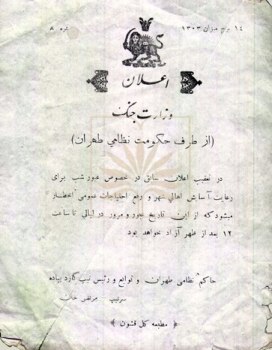 ۱۴ برج میزان ۱۳۰۳ نمره ۸
اعلان
وزارت جنگ
(از طرف حکومت نظامی طهران)
در تعقیب اعلان سابق در خصوص عبور شب برای
رعایت آسایش اهالی شهر و رفع احتیاجات عمومی اخطار
میشود که از این تاریخ عبور و مرور در لیالی تا ساعت
۱۲ بعد از ظهر آزاد خواهد بود
حاکم نظامی طهران و توابع و رئیس تیپ گارد پیاده
سرتیپ مرتضی خان
مطبعه کل قشون